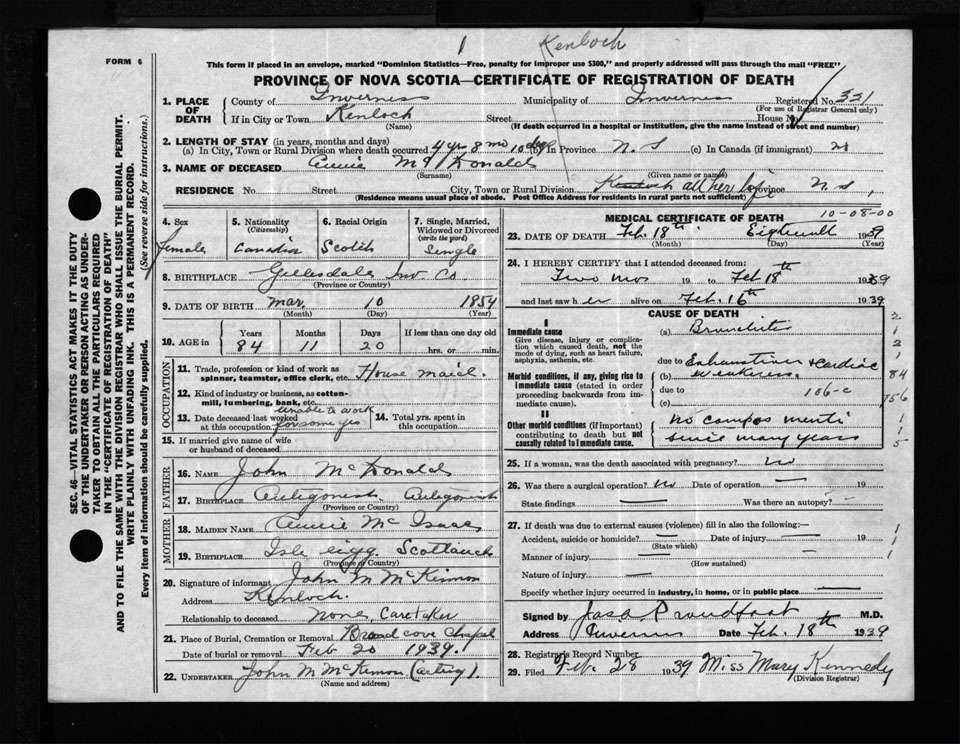 1 Kenloch
FORM 6
This form if placed in an envelope, marked "Dominion Statistics—Free, penalty for improper use $300," and properly addressed will pass through the mail "FREE"
PROVINCE OF NOVA SCOTIA—CERTIFICATE OF REGISTRATION OF DEATH
1. PLACE OF DEATH County of Inverness Municipality of Inverness Registered No. 331
(For use of Registrar General only)
If in City or Town Kenloch Street House No.
(Name) (If death occurred in a hospital or institution, give the name instead of street and number)
2. LENGTH OF STAY (in years, months and days)
(a) In City, Town or Rural Division where death occurred 4 yr 8 mo 10 dys (b) In Province N. S (c) In Canada (if immigrant) no
3. NAME OF DECEASED Annie McDonald
(Surname) (Given name or names)
RESIDENCE No. Street City, Town or Rural Division Kenloch all her life Province N.S,
(Residence means usual place of abode. Post Office Address for residents in rural parts not sufficient)
SEC. 46—VITAL STATISTICS ACT MAKES IT THE DUTY
OF THE UNDERTAKER OR PERSON ACTING AS UNDER-
TAKER TO OBTAIN ALL THE PARTICULARS REQUIRED
IN THE "CERTIFICATE OF REGISTRATION OF DEATH"
AND TO FILE THE SAME WITH THE DIVISION REGISTRAR WHO SHALL ISSUE THE BURIAL PERMIT.
WRITE PLAINLY WITH UNFADING INK. THIS IS A PERMANENT RECORD.
Every item of information should be carefully supplied. (See reverse side for instructions.)
4. Sex 5. Nationality (Citizenship) 6. Racial Origin 7. Single, Married, Widowed or Divorced (write the word)
Female Canadian Scotch Single
8. BIRTHPLACE Gillesdale Inv. Co
(Province or Country)
9. DATE OF BIRTH Mar. 10 1854
(Month) (Day) (Year)
10. AGE in Years Months Days If less than one day old
84 11 20 hrs. or min.
OCCUPATION
11. Trade, profession or kind of work as
spinner, teamster, office clerk, etc. House maid.
12. Kind of industry or business, as cotton-
mill, lumbering, bank, etc.
13. Date deceased last worked at this occupation unable to work for some yrs 14. Total yrs. spent in this occupation
15. If married give name of wife
or husband of deceased
FATHER
16. NAME John McDonald
17. BIRTHPLACE Antigonish, Antigonish
(Province or Country)
MOTHER
18. MAIDEN NAME Annie McIsaac
19. BIRTHPLACE Isle eigg Scotland
(Province or Country)
20. Signature of informant John M McKinnon
Address Kenloch.
Relationship to deceased none, Caretaker
21. Place of Burial, Cremation or Removal Broad cove chapel
Date of burial or removal Feb 20 1939.
22. UNDERTAKER John M McKinnon (acting).
(Name and address)
MEDICAL CERTIFICATE OF DEATH
10-08-00
23. DATE OF DEATH Feb. 18th Eighteenth 1939
(Month) (Day) (Year)
24. I HEREBY CERTIFY that I attended deceased from:
Two mos 19 to Feb 18th 1939
and last saw her alive on Feb. 16th 1939
CAUSE OF DEATH
I
Immediate cause
Give disease, injury or complica-
tion which caused death, not the
mode of dying, such as heart failure,
asphyxia, asthenia, etc.
(a) Bronchitis
due to Exhaustion & cardiac
Morbid conditions, if any, giving rise to
immediate cause (stated in order
proceeding backwards from im-
mediate cause).
(b) weakness
due to 106-c
(c)
II
Other morbid conditions (if important)
contributing to death but not
causally related to immediate cause.
no compos menti
since many years
2
1
2
1
84
756
1
1
5
25. If a woman, was the death associated with pregnancy? no
26. Was there a surgical operation? no Date of operation — 19
State findings — Was there an autopsy? -
27. If death was due to external causes (violence) fill in also the following:—
Accident, suicide or homicide? — Date of injury — 19
(State which)
Manner of injury —
(How sustained)
Nature of injury —
Specify whether injury occurred in industry, in home, or in public place —
1
1
1
Signed by Jas A Proudfoot M.D.
Address Inverness Date Feb. 18th 1939
28. Registrar's Record Number
29. Filed Feb. 28 1939 Miss Mary Kennedy
(Division Registrar)